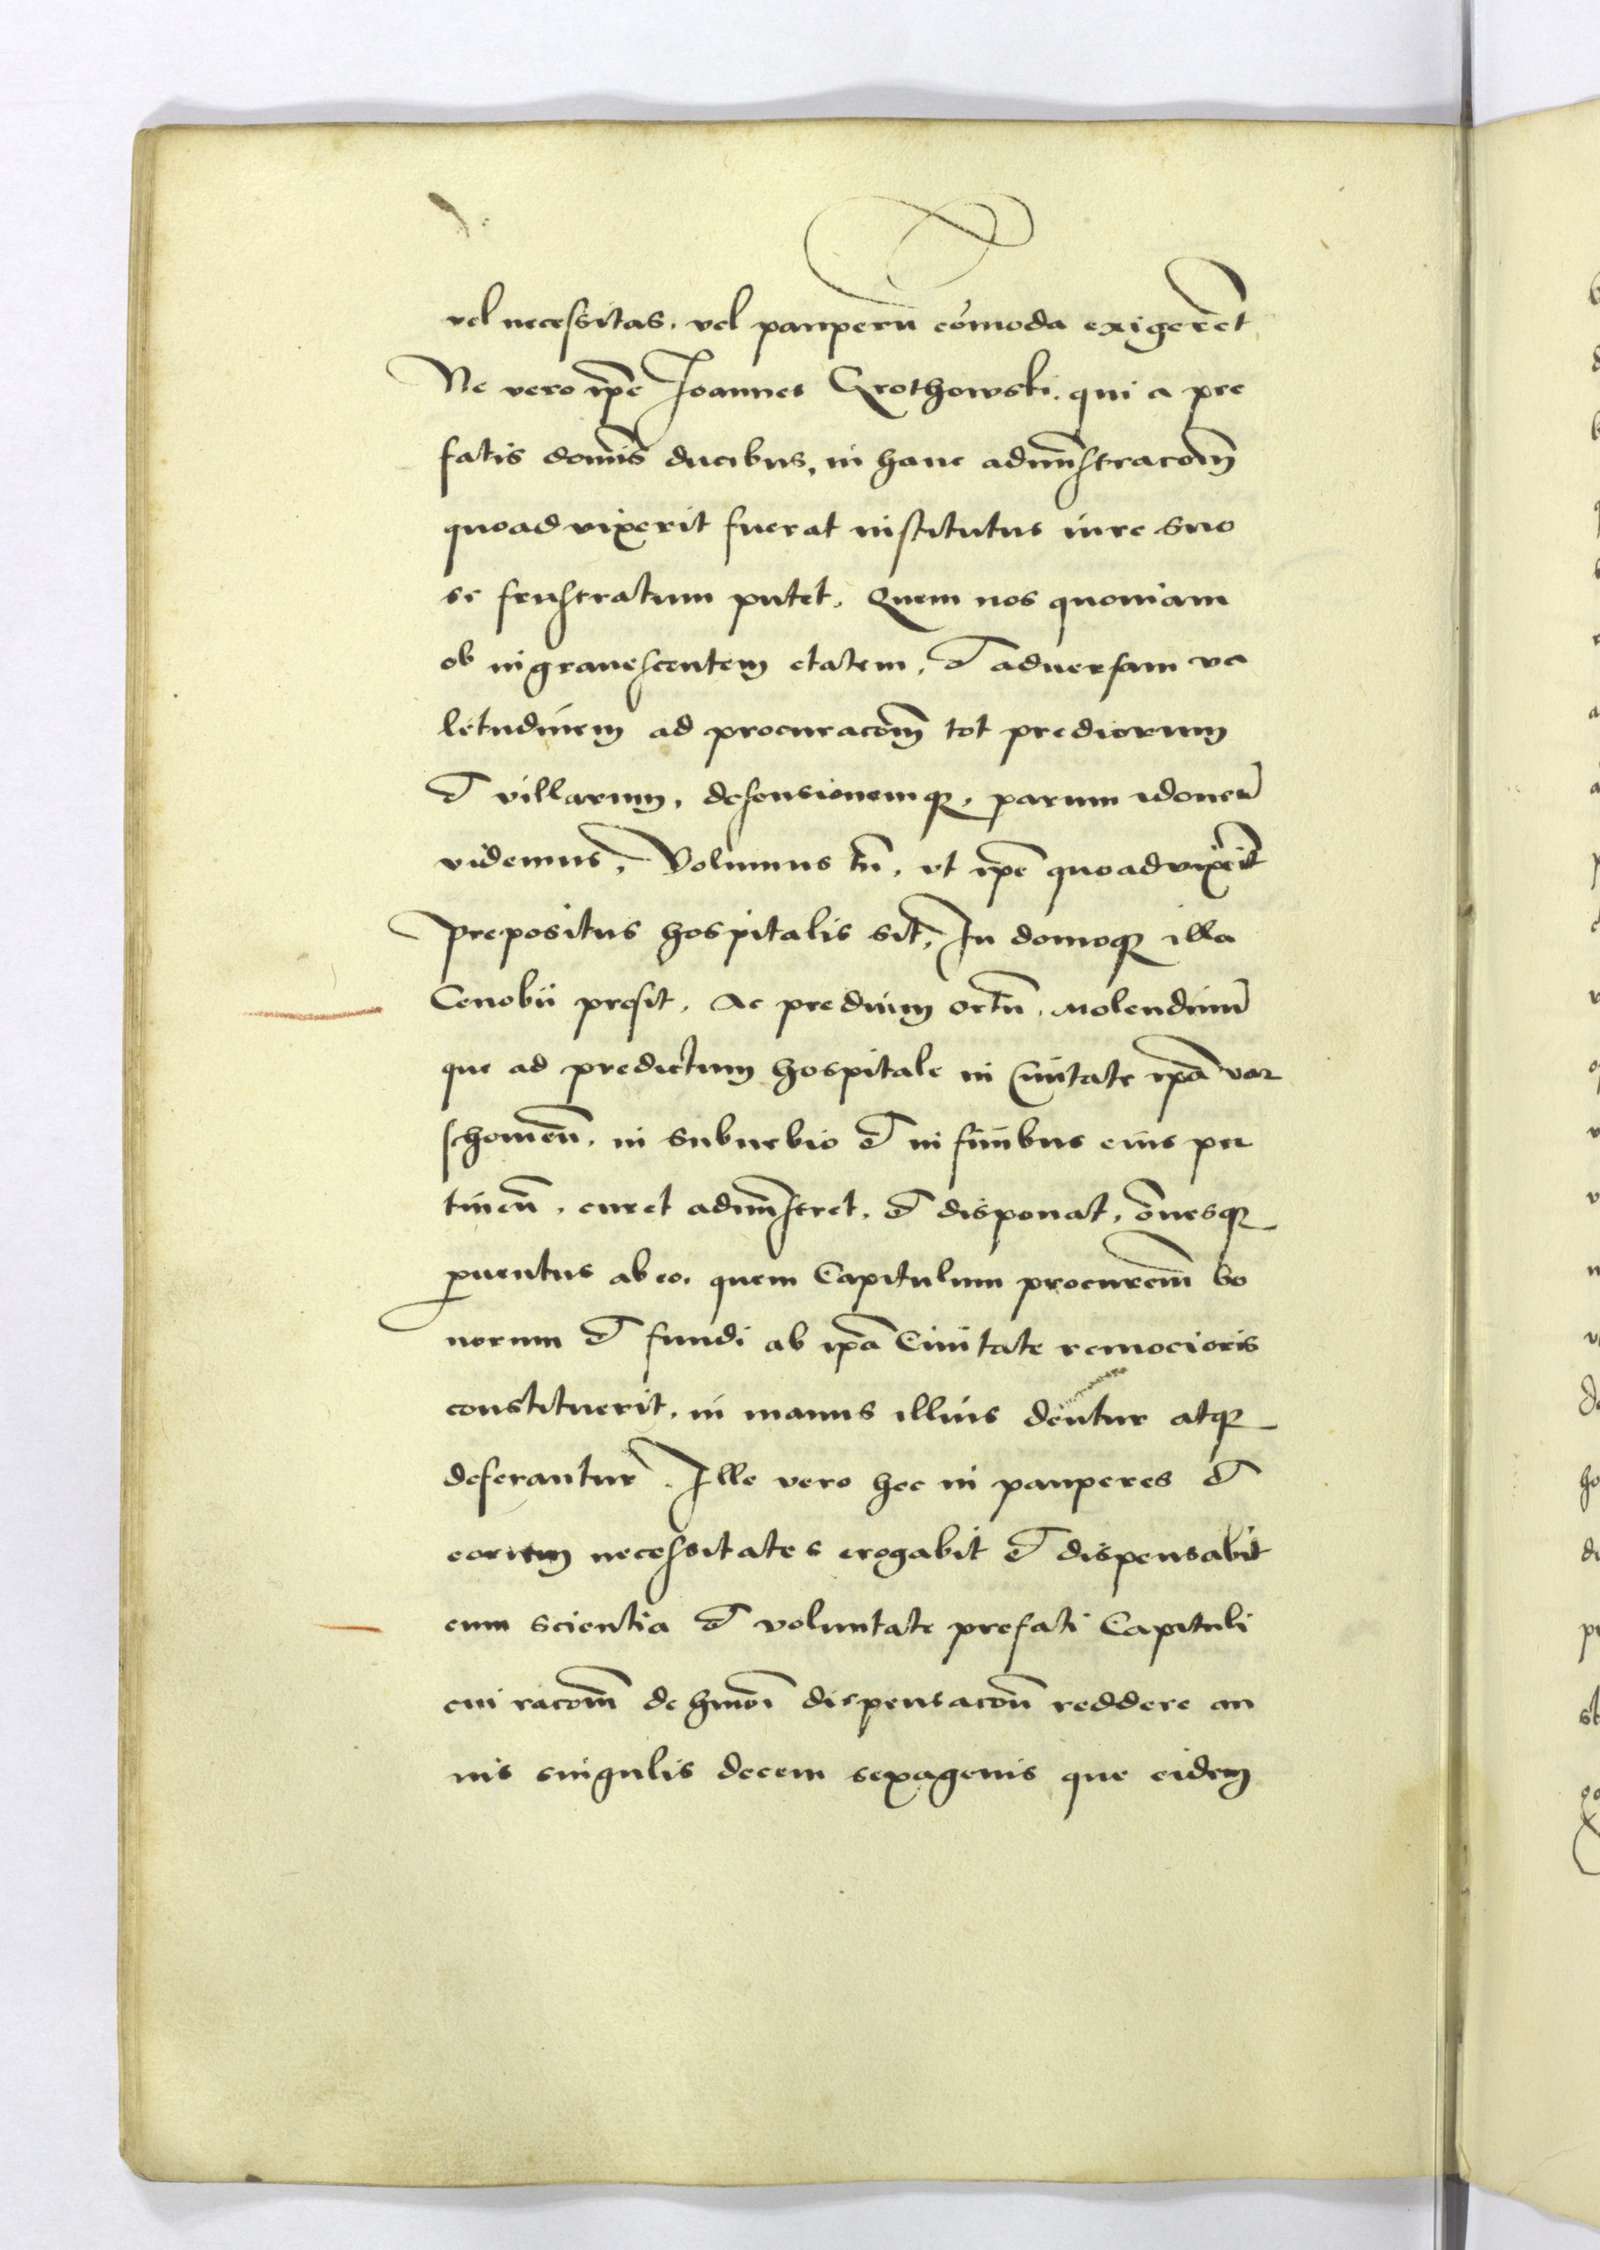 vel necessitas. vel pauperũ cõmoda exigerẽt
Ne vero ip̃e Joannes Grothowski. qui a pre
fatis domĩs ducibus, in hanc adm̃istracoẽm
quoad vixerit fuerat institutus iure suo
se frustratum putet. Quem nos quoniam
ob ingravescentem etatem, et adversam va
letudinem ad procuracoẽm tot prediorum
et villarum, defensionemqꝫ. parum idoneũ
videmus, Volumus tñ. ut ip̃e quoad vixerit
prepositus hospitalis sit, In domoqꝫ illa
Cenobii presit. Ac predium ortũ. Molendinũ
que ad predictum hospitale in Civitate ip̃a var
schovieñ. in suburbio et in finibus eius per
tineñ. curet adm̃istret. et disponat, õnesqꝫ
ꝓventus ab eo. quem Capitulum procureret̃ bo
norum et fundi ab ip̃a Civitate remocioris
constituerit. in manus illius dentur atqꝫ
deferantur. Ille vero hec in pauperes et
eorum necessitates erogabit et dispensabit
cum scientia et voluntate prefati Capituli
cui racoẽm de hm̃oi dispensacoẽ reddere an
nis singulis decem sexagenis que eidem